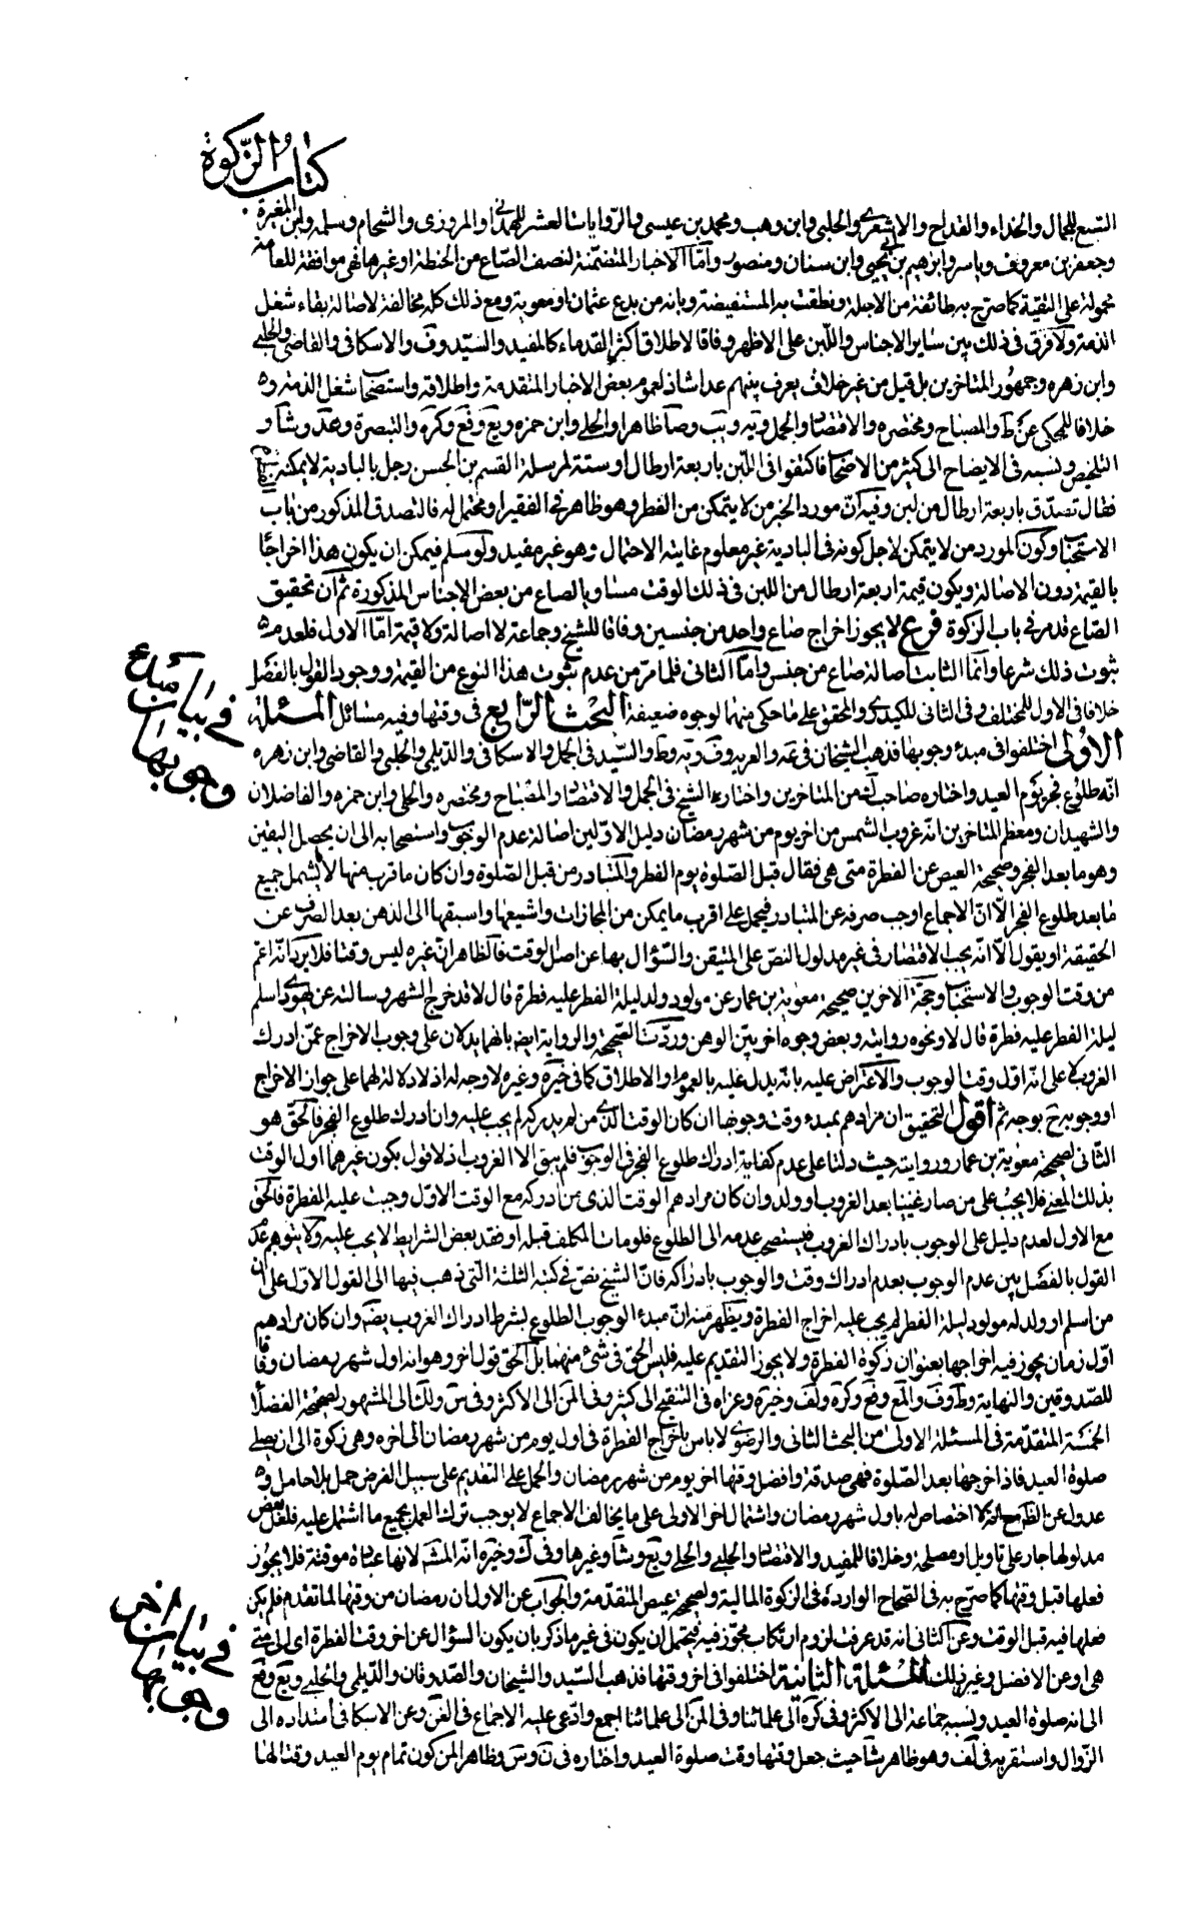 كتاب الزكوة
التسع للجمال والحذاء والقداح والاشعري والحلبي وابن وهب ومحمد بن عيسى والروايات العشر للهمداني والمروزى والشحام وسلمه وابن المغيرة
وجعفر بن معروف وياسر وابرهيم بن يحيى وابن سنان ومنصور وامّا الاخبار المتضمّنة لنصف الصّاع من الحنطة او غيرها فهى موافقة للعامة
محمولة على التقية كما صرّح به طائفة من الاجلة ونطقت به المستفيضة وبانه من بدع عثمان او معوية ومع ذلك كله مخالفة لاصالة بقاء شغل
الذمة ولا فرق فى ذلك بين ساير الاجناس واللّبن على الاظهر وفاقا لاطلاق اكثر القدماء كالمفيد والسّيد وف والاسكافى والقاضى والحلبي
وابن زهره وجمهور المتاخرين بل قيل من غير خلاف يعرف بينهم عدا شاذ لعموم بعض الاخبار المتقدمة واطلاقه واستصحاب شغل الذمة
خلافا للمحكى عن ط والمصباح ومختصره والاقتصاد والجمل ويه ويب وصا ظاهرا والحلي وابن حمزه ويع وفع وكره والتبصرة وعد وشاد و
التلخيص ونسبه فى الايضاح الى كثير من الاصحاب فاكتفوا فى اللّبن باربعة ارطال او ستة لمرسلة القسم بن الحسن رجل بالبادية لا يمكنه
فقال تصدّق باربعة ارطال من لبن وفيه انّ مورد الخبر من لا يتمكن من الفطرة وهو ظاهر فى الفقير او محتمل له فالتصدق المذكور من باب
الاستحباب وكون المورد من لا يتمكن لاجل كونه فى البادية غير معلوم غايته الاحتمال وهو غير مفيد ولو سلم فيمكن ان يكون هذا اخراجا
بالقيمة دون الاصالة ويكون قيمة اربعة ارطال من اللبن فى ذلك الوقت مساويا لصاع من بعض الاجناس المذكورة ثم ان تحقيق
الصّاع قد مر فى باب الزكوة فرع لا يجوز اخراج صاع واحد من جنسين وفاقا للشيخ وجماعة لا اصالة ولا قيمة امّا الاول فلعدم
ثبوت ذلك شرعا وانّما الثابت اصالة صاع من جنس وامّا الثانى فلما مرّ من عدم ثبوت هذا النوع من القيمة ووجود القول بالفصل
خلافا فى الاول للمختلف وفى الثانى للكيدرى والمحقق على ما حكى منهما لوجوه ضعيفة البحث الرّابع فى وقتها وفيه مسائل المسئلة
الاولى اختلفوا فى مبدء وجوبها فذهب الشيخان فى عه والعريه وف ويه وط والسّيد فى الجمل والاسكافى والديلمى والحلبى والقاضى وابن زهره
انّه طلوع فجر يوم العيد واختاره صاحب ك من المتاخرين واختار الشيخ فى الجمل والاقتصاد والمصباح ومختصره والحلى وابن حمزه والفاضلان
والشهيدان ومعظم المتاخرين انّه غروب الشمس من اخر يوم من شهر رمضان دليل الاوّلين اصالة عدم الوجوب واستصحابه الى ان يحصل اليقين
وهو ما بعد الفجر وصحيحة العيص عن الفطرة متى هى فقال قبل الصّلوة يوم الفطر والمتبادر من قبل الصّلوة وان كان ما قرب منها لا يشمل جميع
ما بعد طلوع الفجر الّا انّ الاجماع اوجب صرفه عن المتبادر فيحمل على اقرب ما يمكن من المجازات واشيعها واسبقها الى الذهن بعد الصرف عن
الحقيقة او يقول الّا انّه يجب الاقتصار فى غير مدلول النصّ على المتيقن والسّؤال بها عن اصل الوقت فالظاهر ان غيره ليس وقتا فلا يرد انّه اعم
من وقت الوجوب والاستحباب وحجّة الاخرين صحيحة معوية بن عمار عن مولود ولد ليلة الفطر عليه فطرة قال لا قد خرج الشهر وسالته عن يهودى اسلم
ليلة الفطر عليه فطرة قال لا ونحوه روايته وبعض وجوه اخر بيّن الوهن وردّت الصّحيحة والرواية ايضا بانهما يدلان على وجوب الاخراج عمّن ادرك
الغروب لا على انّه اوّل وقت الوجوب والاعتراض عليه بانّه يدل عليه بالعموم او الاطلاق كما فى خيرة وغيره لا وجه له اذ لا دلالة لهما على جواز الاخراج
او وجوبه ح بوجه ثم اقول التحقيق ان مرادهم بمبدء وقت وجوبها ان كان الوقت الذى من لم يدركه لم يجب عليه وان ادرك طلوع الفجر فالحق هو
الثانى لصحيحة معوية بن عمار وروايته حيث دلتا على عدم كفاية ادراك طلوع الفجر فى الوجوب فلم يبق الا الغروب اذ لا قول بكون غيرهما اول الوقت
بذلك المعنى فلا يجب على من صار غنيا بعد الغروب او ولد وان كان مرادهم الوقت الذى من ادركه مع الوقت الاوّل وجبت عليه الفطرة فالحق
مع الاول لعدم دليل على الوجوب بادراك الغروب فيستصحب عدمه الى الطلوع فلو مات المكلف قبله او فقد بعض الشرايط لا يجب عليه ولا يتوهم عدم
القول بالفصل بين عدم الوجوب بعدم ادراك وقت والوجوب بادراكه فانّ الشيخ نصّ فى كتبه الثلثة التى ذهب فيها الى القول الاوّل على ان
من اسلم او ولد له مولود ليلة الفطر لم يجب عليه اخراج الفطرة ويظهر منه انّ مبدء الوجوب الطلوع بشرط ادراك الغروب ايضا وان كان مرادهم
اوّل زمان يجوز فيه اخراجها بعنوان زكوة الفطرة ولا يجوز التقديم عليه فليس الحق فى شئ منهما بل الحق قول اخر وهو انه اول شهر رمضان وفاقا
للصّدوقين والنهاية وط وف والمع وفع وكره ولف وخيرة وعزاه فى التنقيح الى كثير وفى المن الى الاكثر وفى س ولك الى المشهور لصحيحة الفضلاء
الخمسة المتقدّمة فى المسئلة الاولى من البحث الثانى والرضوى لا باس باخراج الفطرة فى اول يوم من شهر رمضان الى اخره وهى زكوة الى ان يصلى
صلوة العيد فاذا اخرجها بعد الصّلوة فهى صدقة وافضل وقتها اخر يوم من شهر رمضان والحمل على التقديم على سبيل القرض حمل بلا حامل
عدول عن الظ مع انّه لا اختصاص له باول شهر رمضان واشتمال اخر الاولى على ما يخالف الاجماع لا يوجب ترك العمل بجميع ما اشتمل عليه فلعل بعض
مدلولها جار على تاويل او مصلحة وخلافا للمفيد والاقتصاد والحلبي والحلي ويع وشا وغيرها وفى ك وخيرة انّه المش لانها عبادة موقتة فلا يجوز
فعلها قبل وقتها كما صرّح به فى الصّحاح الواردة فى الزكوة المالية ولصحيحة عيص المتقدّمة والجواب عن الاول ان رمضان من وقتها لما تقدم فلم يكن
فعلها فيه قبل الوقت وعن الثانى انّه قد عرفت لزوم ارتكاب تجوّز فيه فيحتمل ان يكون فى غير ما ذكر بان يكون السؤال عن اخر وقت الفطرة اى الى متى
هى او عن الافضل وغير ذلك المسئلة الثانية اختلفوا فى اخر وقتها فذهب السّيد والشيخان والصّدوقان والدّيلمى والحلبى ويع وفع
الى انه صلوة العيد ونسبه جماعة الى الاكثر وفى كره الى علمائنا وفى المن الى علمائنا اجمع وادّعى عليه الاجماع فى الغن وعن الاسكافى امتداده الى
الزّوال واستقربه فى لف وهو ظاهر شا حيث جعل وقتها وقت صلوة العيد واختاره فى ن وس وظاهر المن كون تمام يوم العيد وقتا لها
فى بيان مبدء
وجوبها
فى بيان اخر
وجوبها